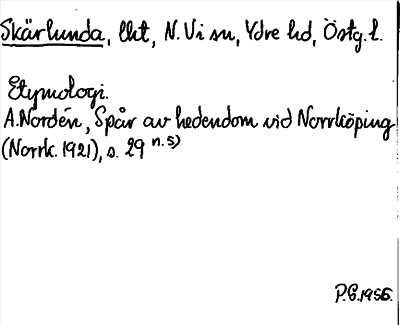 Skärlunda, lht, N. Vi sn, Ydre hd, Östg. l.
Etymologi.
A. Nordén, Spår av hedendom vid Norrköping
(Norrk. 1921), s. 29 n. 5)
P.G. 1956.